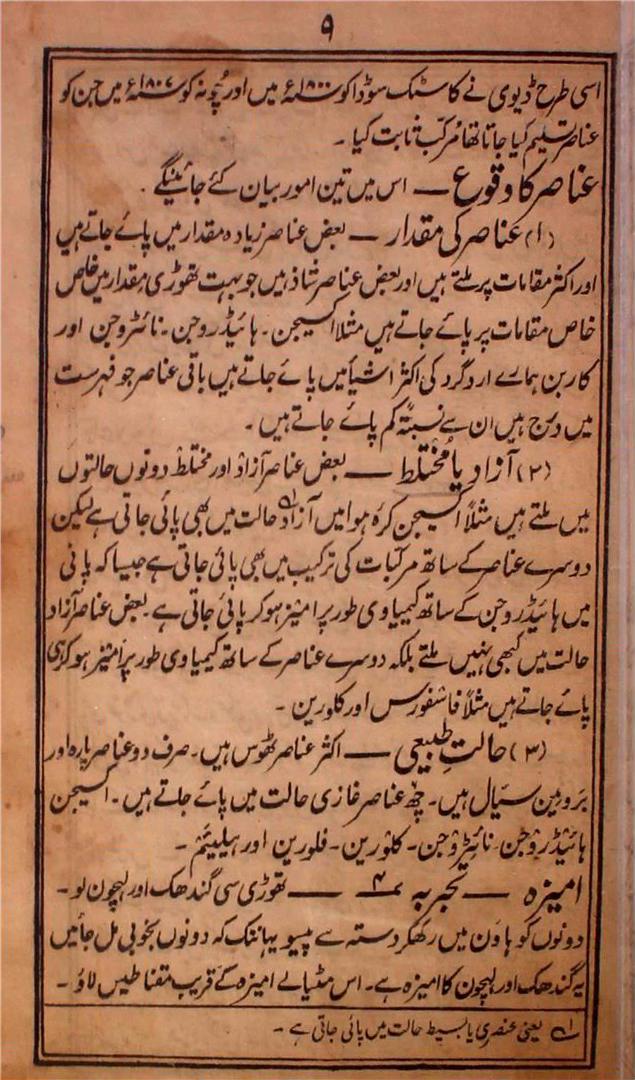 ۹
اسی طرح ڈیوی نے کاسٹک سوڈا کو ۱۸۰۰ء میں اور چُونہ کو ۱۸۰۷ء میں جن کو
عناصر تسلیم کیا جاتا تھا مرکّب ثابت کیا ۔
عناصر کا وقوع — اس میں تین امور بیان کئے جائینگے ۔
(۱) عناصر کی مقدار — بعض عناصر زیادہ مقدار میں پائے جاتے ہیں
اور اکثر مقامات پر ملتے ہیں اور بعض عناصر شاذ ہیں جو بہت تھوڑی مقدار میں خاص
خاص مقامات پر پائے جاتے ہیں مثلاً آکسیجن ۔ ہائیڈروجن ۔ نائٹروجن اور
کاربن ہمارے اردگرد کی اکثر اشیأ میں پائے جاتے ہیں باقی عناصر جو فہرست
میں درج ہیں ان سے نسبتہً کم پائے جاتے ہیں ۔
(۲) آزاد یا مُختلط — بعض عناصر آزاد اور مختلط دونوں حالتوں
میں ملتے ہیں مثلاً آکسیجن کرّہ ہوا میں آزاد۱ حالت میں بھی پائی جاتی ہے لیکن
دوسرے عناصر کے ساتھ مرکّبات کی ترکیب میں بھی پائی جاتی ہے جیسا کہ پانی
میں ہائیڈروجن کے ساتھ کیمیاوی طور پر امیز ہو کر پائی جاتی ہے ۔ بعض عناصر آزاد
حالت میں کبھی نہیں ملتے بلکہ دوسرے عناصر کے ساتھ کیمیاوی طور پر امیز ہو کر ہی
پائے جاتے ہیں مثلاً فاسفورس اور کلورین ۔
(۳) حالتِ طبیعی — اکثر عناصر ٹھوس ہیں ۔ صرف دو عناصر پارہ اور
برومین سیّال ہیں ۔ چھ عناصر غازی حالت میں پائے جاتے ہیں ۔ آکسیجن
ہائیڈروجن ۔ نائیٹروجن ۔ کلورین ۔ فلورین اور ہیلیئم ۔
امیزہ — تجربہ ۴ — تھوڑی سی گندھک اور لہچون لو ۔
دونوں کو ہاون میں رکھکر دستہ سے پیسو یہانتک کہ دونوں بخوبی مل جائیں
یہ گندھک اور لہچون کا امیزہ ہے ۔ اس مٹیالے امیزہ کے قریب مقناطیس لاؤ ۔
۱ یعنی عنصری یا بسیط حالت میں پائی جاتی ہے ۔